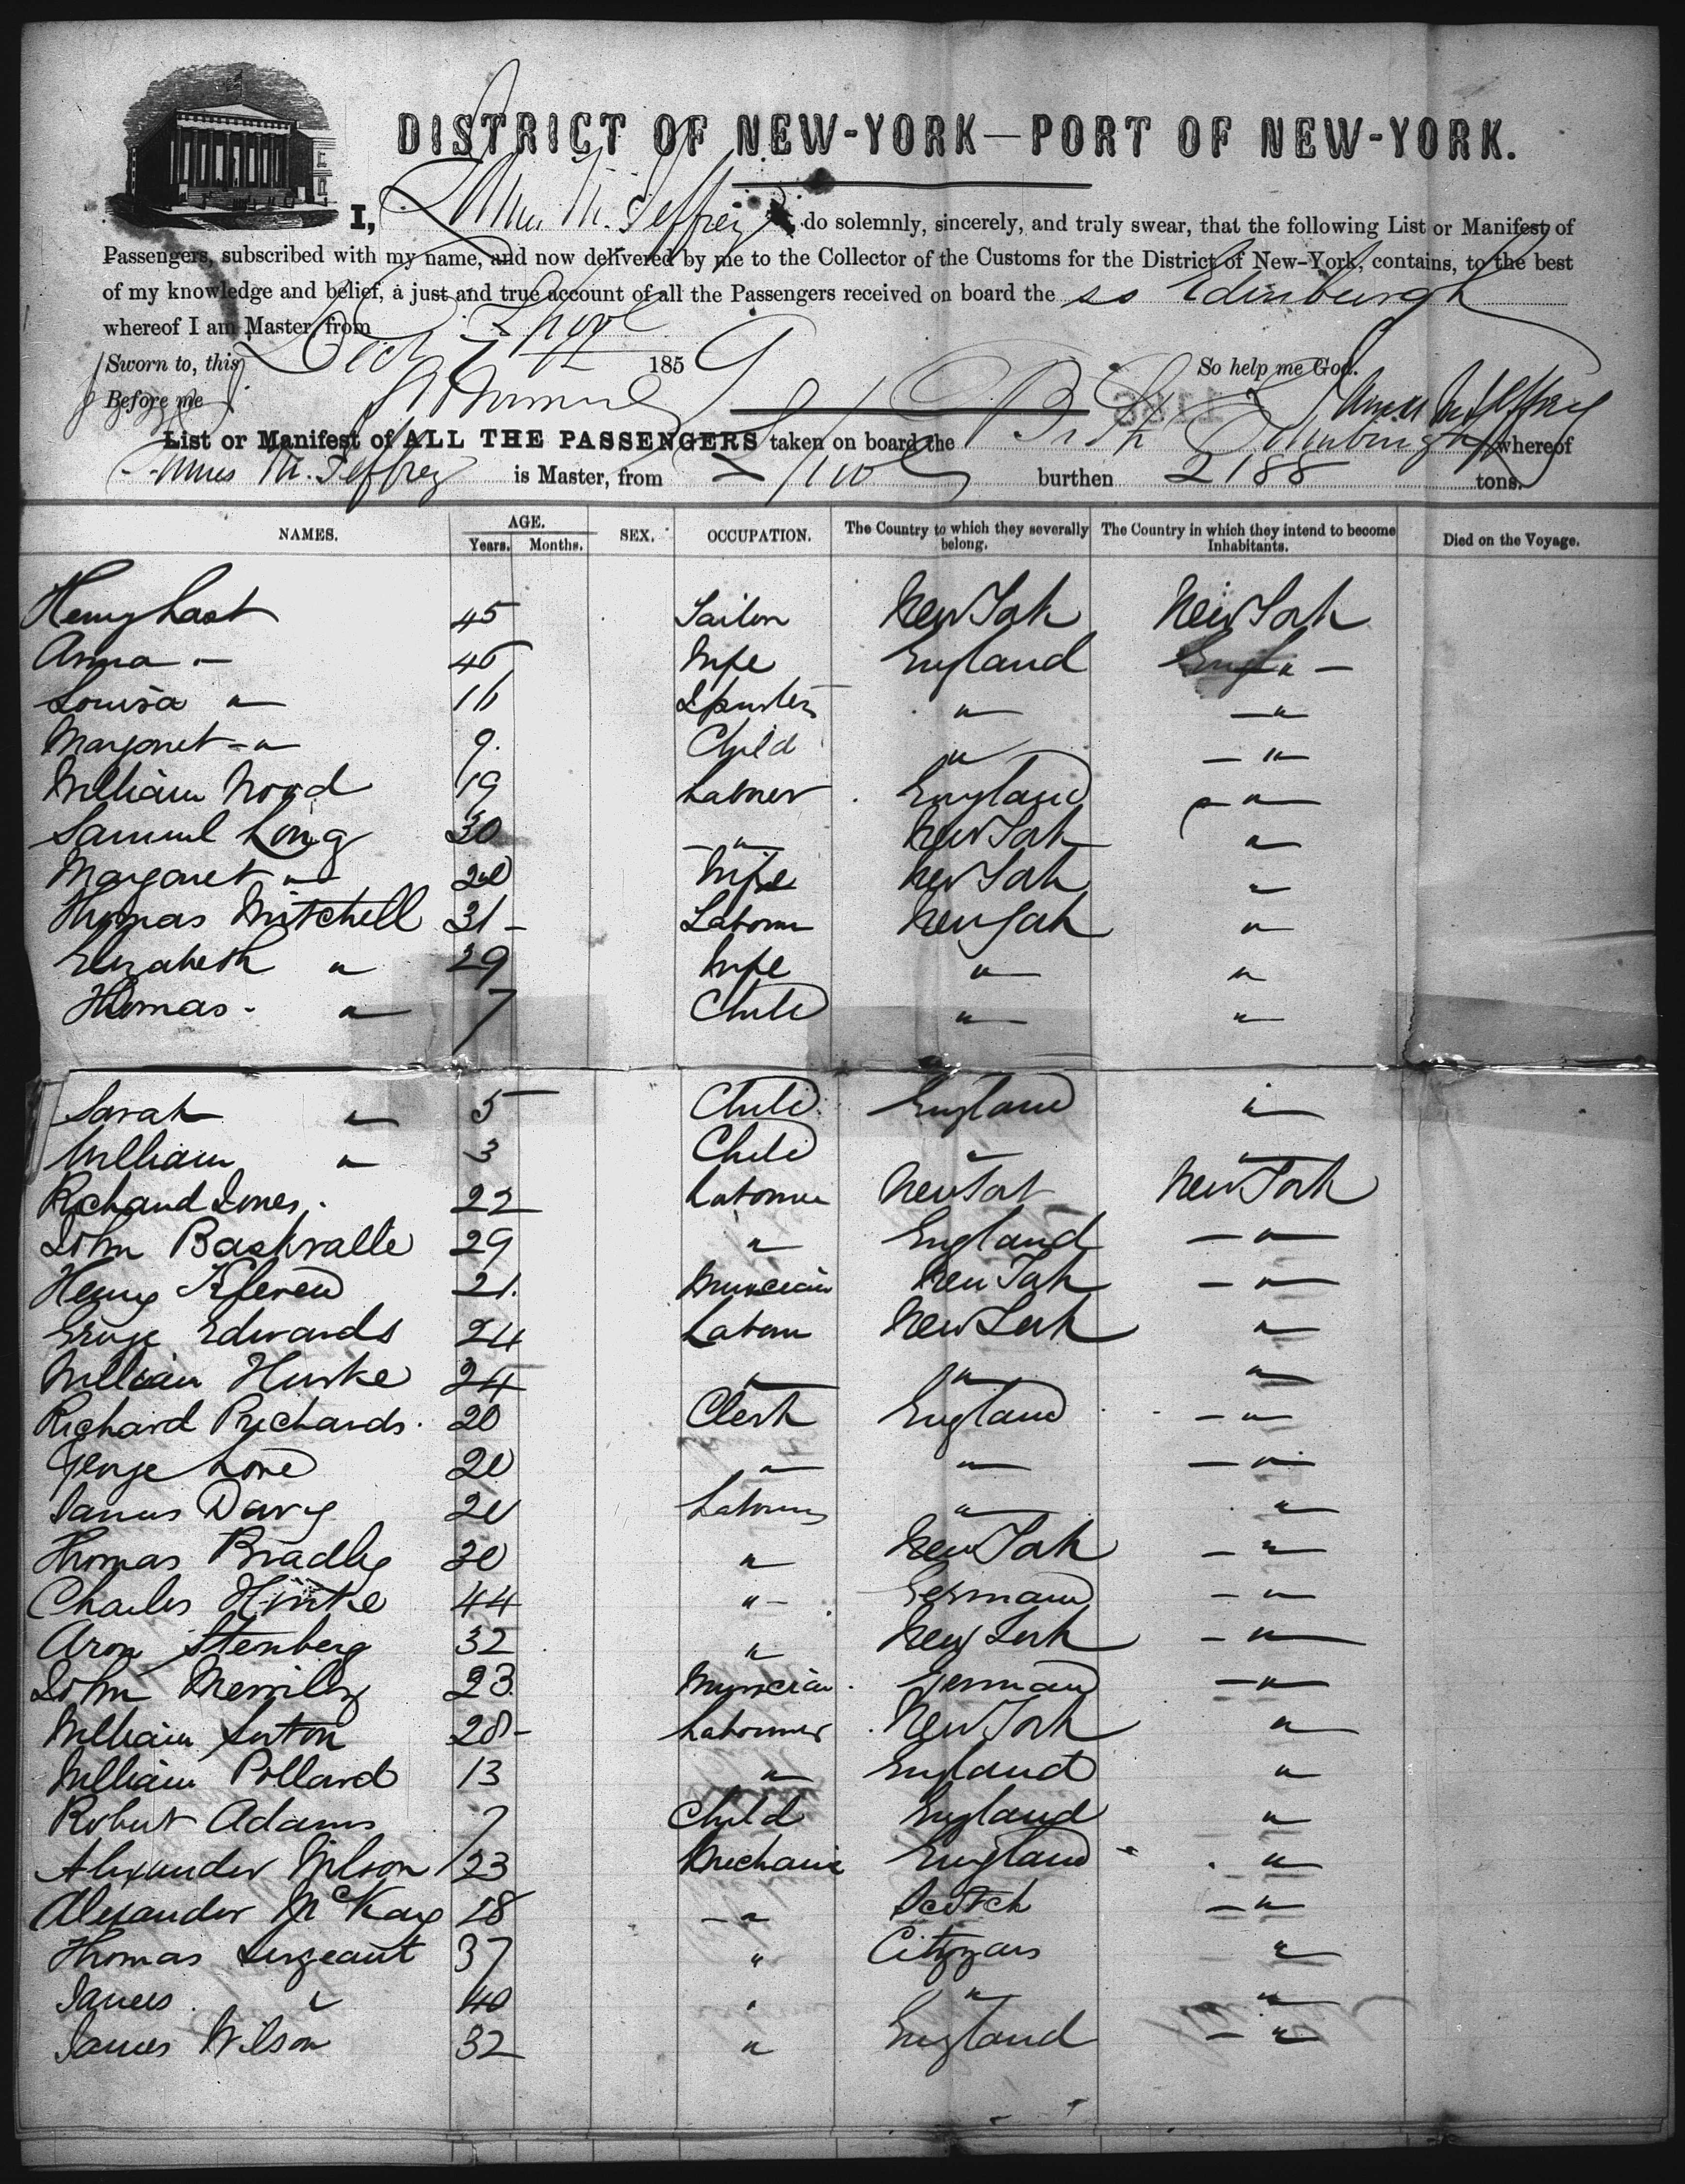 DISTRICT OF NEW-YORK—PORT OF NEW-YORK.
I, James M. Jeffrey do solemnly, sincerely, and truly swear, that the following List or Manifest of
Passengers, subscribed with my name, and now delivered by me to the Collector of the Customs for the District of New-York, contains, to the best
of my knowledge and belief, a just and true account of all the Passengers received on board the ss Edinburgh
whereof I am Master, from L'pool
Sworn to, this Oct 7th 1859 So help me God.
Before me James M Jeffrey
List or Manifest of ALL THE PASSENGERS taken on board the Br Str Edinburgh whereof
James M. Jeffrey is Master, from L'pool burthen 2188 tons.
NAMES. AGE. Years. Months. SEX. OCCUPATION. The Country to which they severally belong. The Country in which they intend to become Inhabitants. Died on the Voyage.
Henry Last 45 Sailor New York New York
Anna " 45 Wife England Engl " —
Louisa " 16 Spinster " "
Margaret " 9. Child " "
William Wood 19 Labner England "
Samuel Long 30 " New York "
Margaret " 20 Wife New York "
Thomas Mitchell 31 Labour New York "
Elizabeth " 29 Wife " "
Thomas " 7 Child " "
Sarah " 5 Child England "
William " 3 Child " "
Richard Jones 22 Labourer New York New York
John 29 " England "
Henry 21. Musician New York "
Edwards 24 Labour New York "
William 24 " " "
Richard Richards. 20 Clerk England "
George Lore 20 " " "
James Davy 20 Labourer " "
Thomas Bradley 30 " New York "
Charles Hinke 44 " German "
Aron Stenberg 32 " New York "
John 23 Musician German "
William Suton 28 Labourer New York "
William Pollard 13 " England "
Robert Adams 7 Child England "
Alexander Wilson 23 Mechanic England "
Alexander McKay 18 " Scotch "
Thomas Sergeant 37 " Citizens "
James " 40 " " "
James Wilson 32 " England "